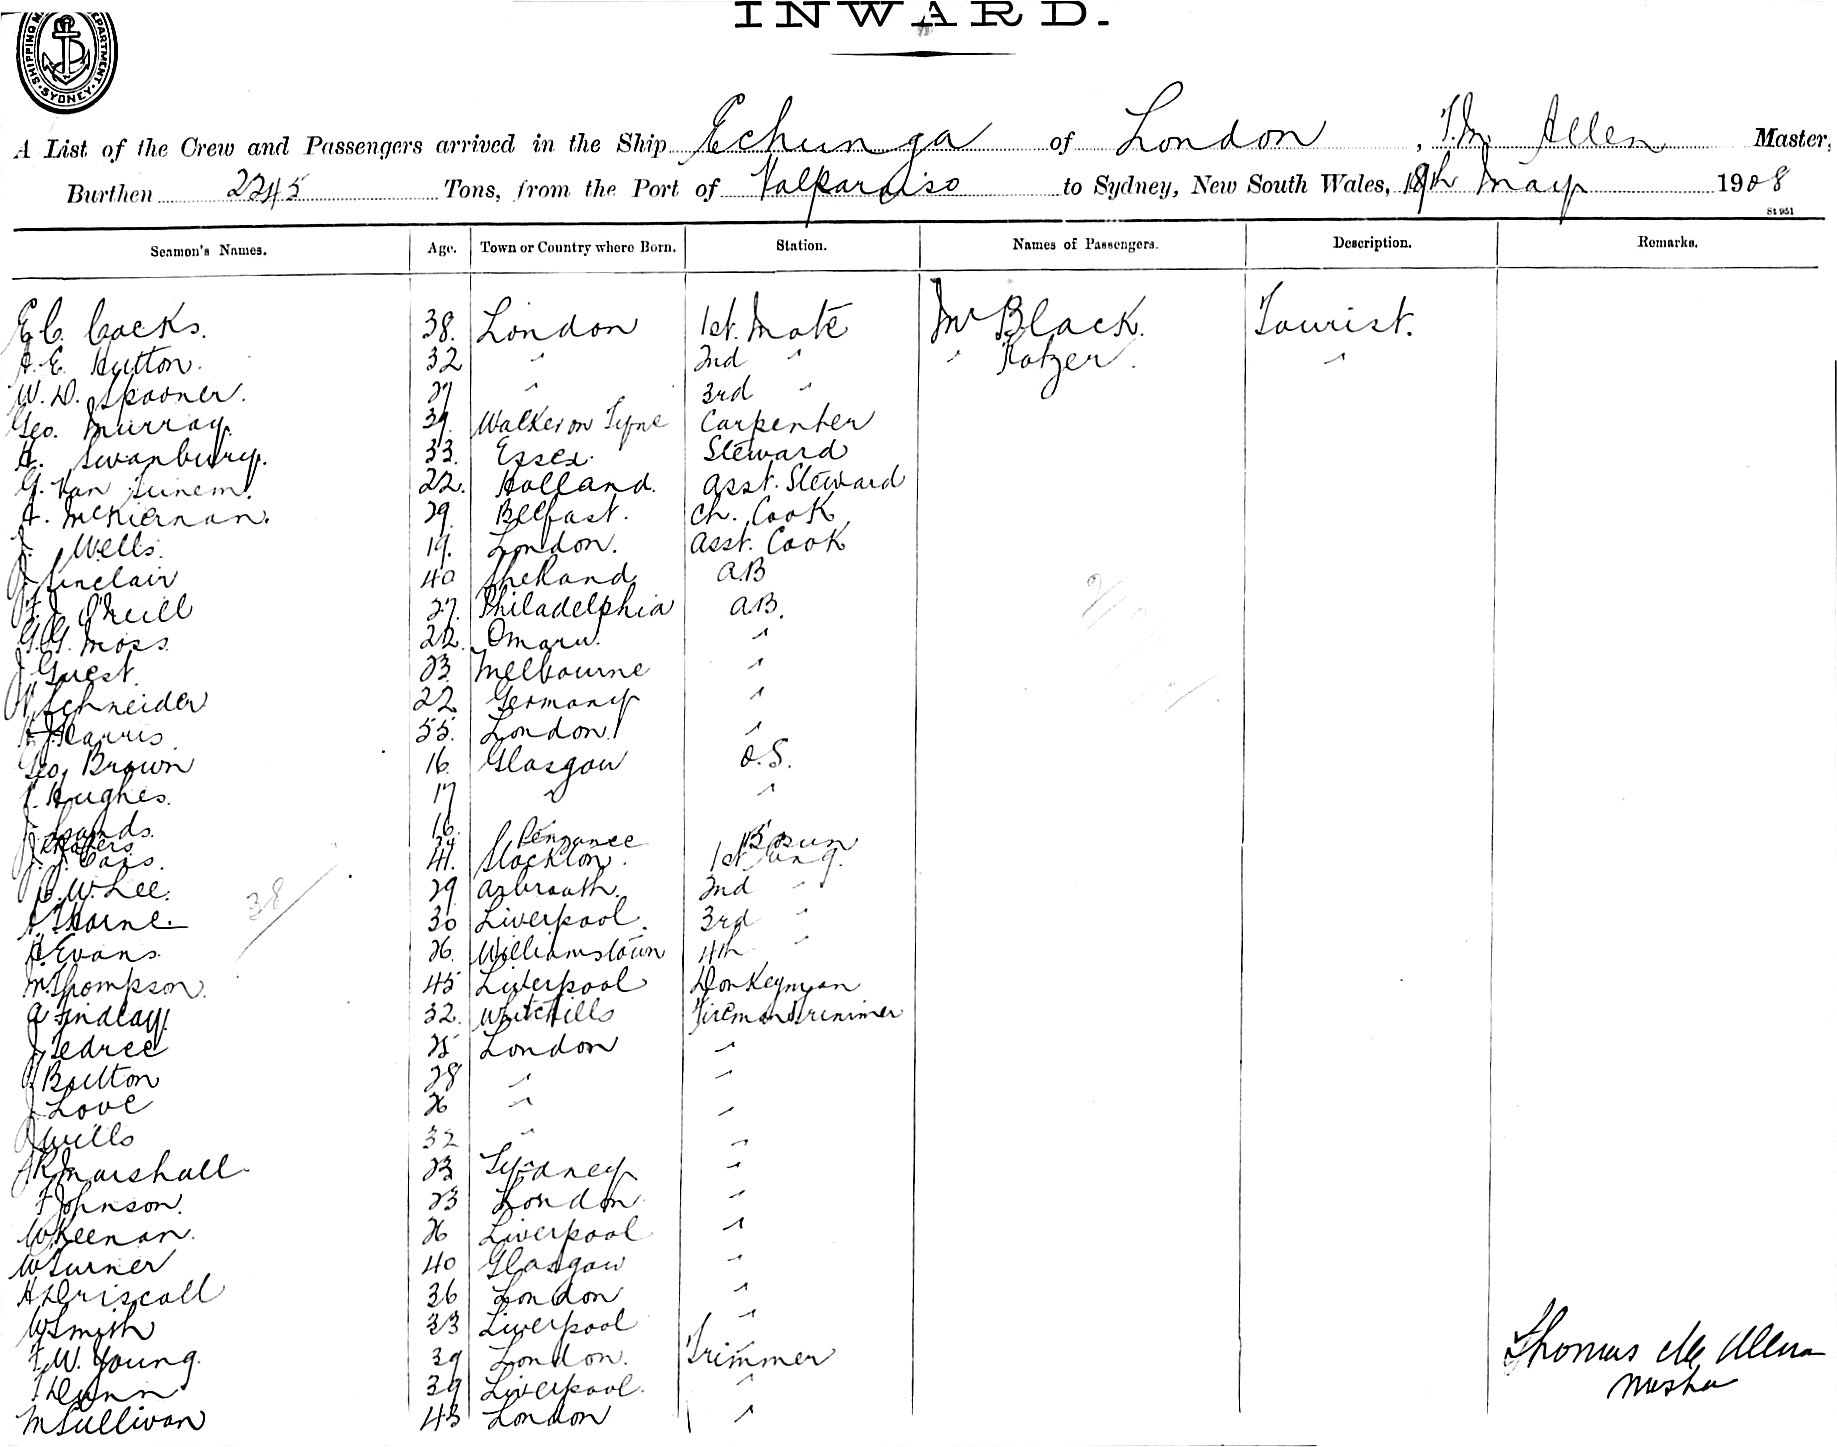 INWARD.
SHIPPING DEPARTMENT SYDNEY
A List of the Crew and Passengers arrived in the Ship Echunga of London, T.M. Allen Master,
Burthen 2245 Tons, from the Port of Valparaiso to Sydney, New South Wales, 19th May 1908
St 951
Seamen's Names. Age. Town or Country where Born. Station. Names of Passengers. Description. Remarks.
E.C. Cocks. 38. London 1st. Mate Mr Black. Tourist.
A. E. Hutton. 32 " 2nd " " Kotzer. "
W. D. Spooner. 27 " 3rd "
Geo. Murray. 39. Walker on Tyne Carpenter
A. Swanbury. 33. Essex. Steward
G. Van 22. Holland. asst. Steward
A. McKiernan. 29. Belfast. Ch. Cook
J. Wells. 19. London. asst. Cook
J Sinclair 40 Shetland AB
F.J. O'Neill 27. Philadelphia AB.
G.G. Moss 22. Omaru. "
J Guest. 23 Melbourne "
Schneider 22 Germany "
H.J. Harris 55. London. "
Geo. Brown 16. Glasgow O.S.
Hughes. 17 " "
J. Sounds. 16. " "
34 Penzance Bosun
J. J. 41. Stockton. 1st Eng.
W. Lee. 29 Arbroath. 2nd "
38
A. Thorne. 30 Liverpool. 3rd "
A. Evans. 26. Williamstown 4th "
M. Thompson. 45 Liverpool Donkeyman
A Findlay. 32. Whitehills Fireman & Trimmer
J. Pedree 25 London "
J Boulton 28 " "
J Love 26 " "
J Wills 32 " "
J R Marshall 23 Sydney "
F Johnson. 23 London. "
W Keenan. 26 Liverpool "
W Turner 40 Glasgow "
H Driscoll 36 London "
W Smith 33 Liverpool "
F. W. Young. 39 London. Trimmer
T Dunn 39 Liverpool. "
M Sullivan 43 London "
Thomas Mc Allen
Master